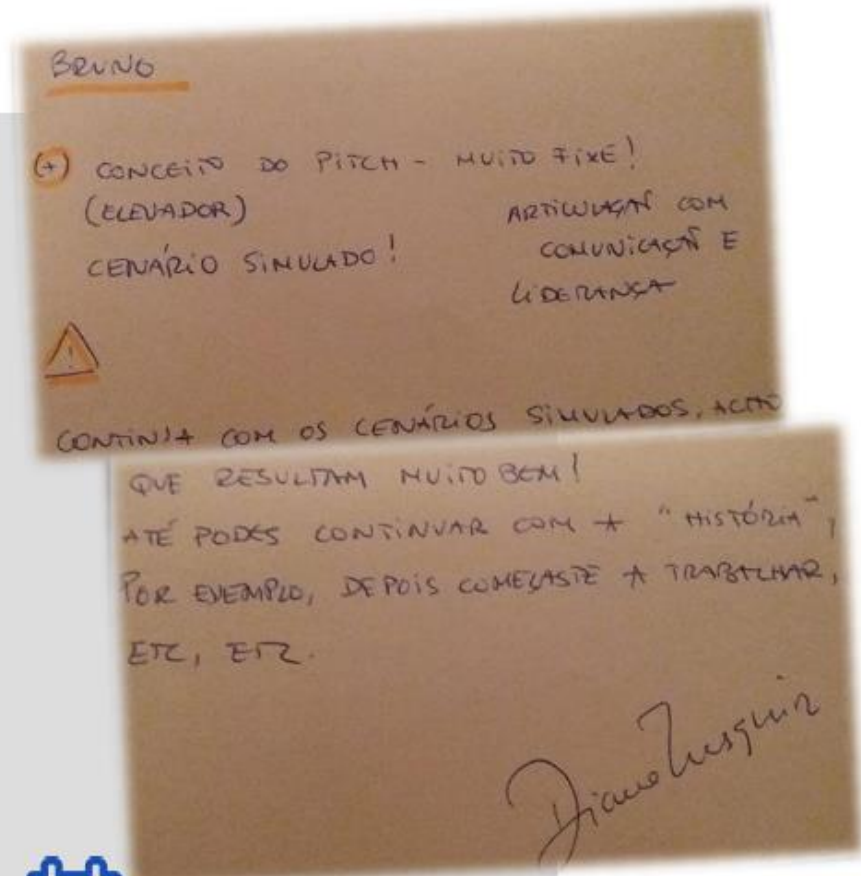 BRUNO
(+) CONCEITO DO PITCH - MUITO FIXE!
(ELEVADOR)
CENÁRIO SIMULADO!
ARTICULAÇÃO COM
COMUNICAÇÃO E
LIDERANÇA
!
CONTINUA COM OS CENÁRIOS SIMULADOS, ACHO
QUE RESULTAM MUITO BEM!
ATÉ PODES CONTINUAR COM A "HISTÓRIA",
POR EXEMPLO, DEPOIS COMEÇASTE A TRABALHAR,
ETC, ETC.
Diana